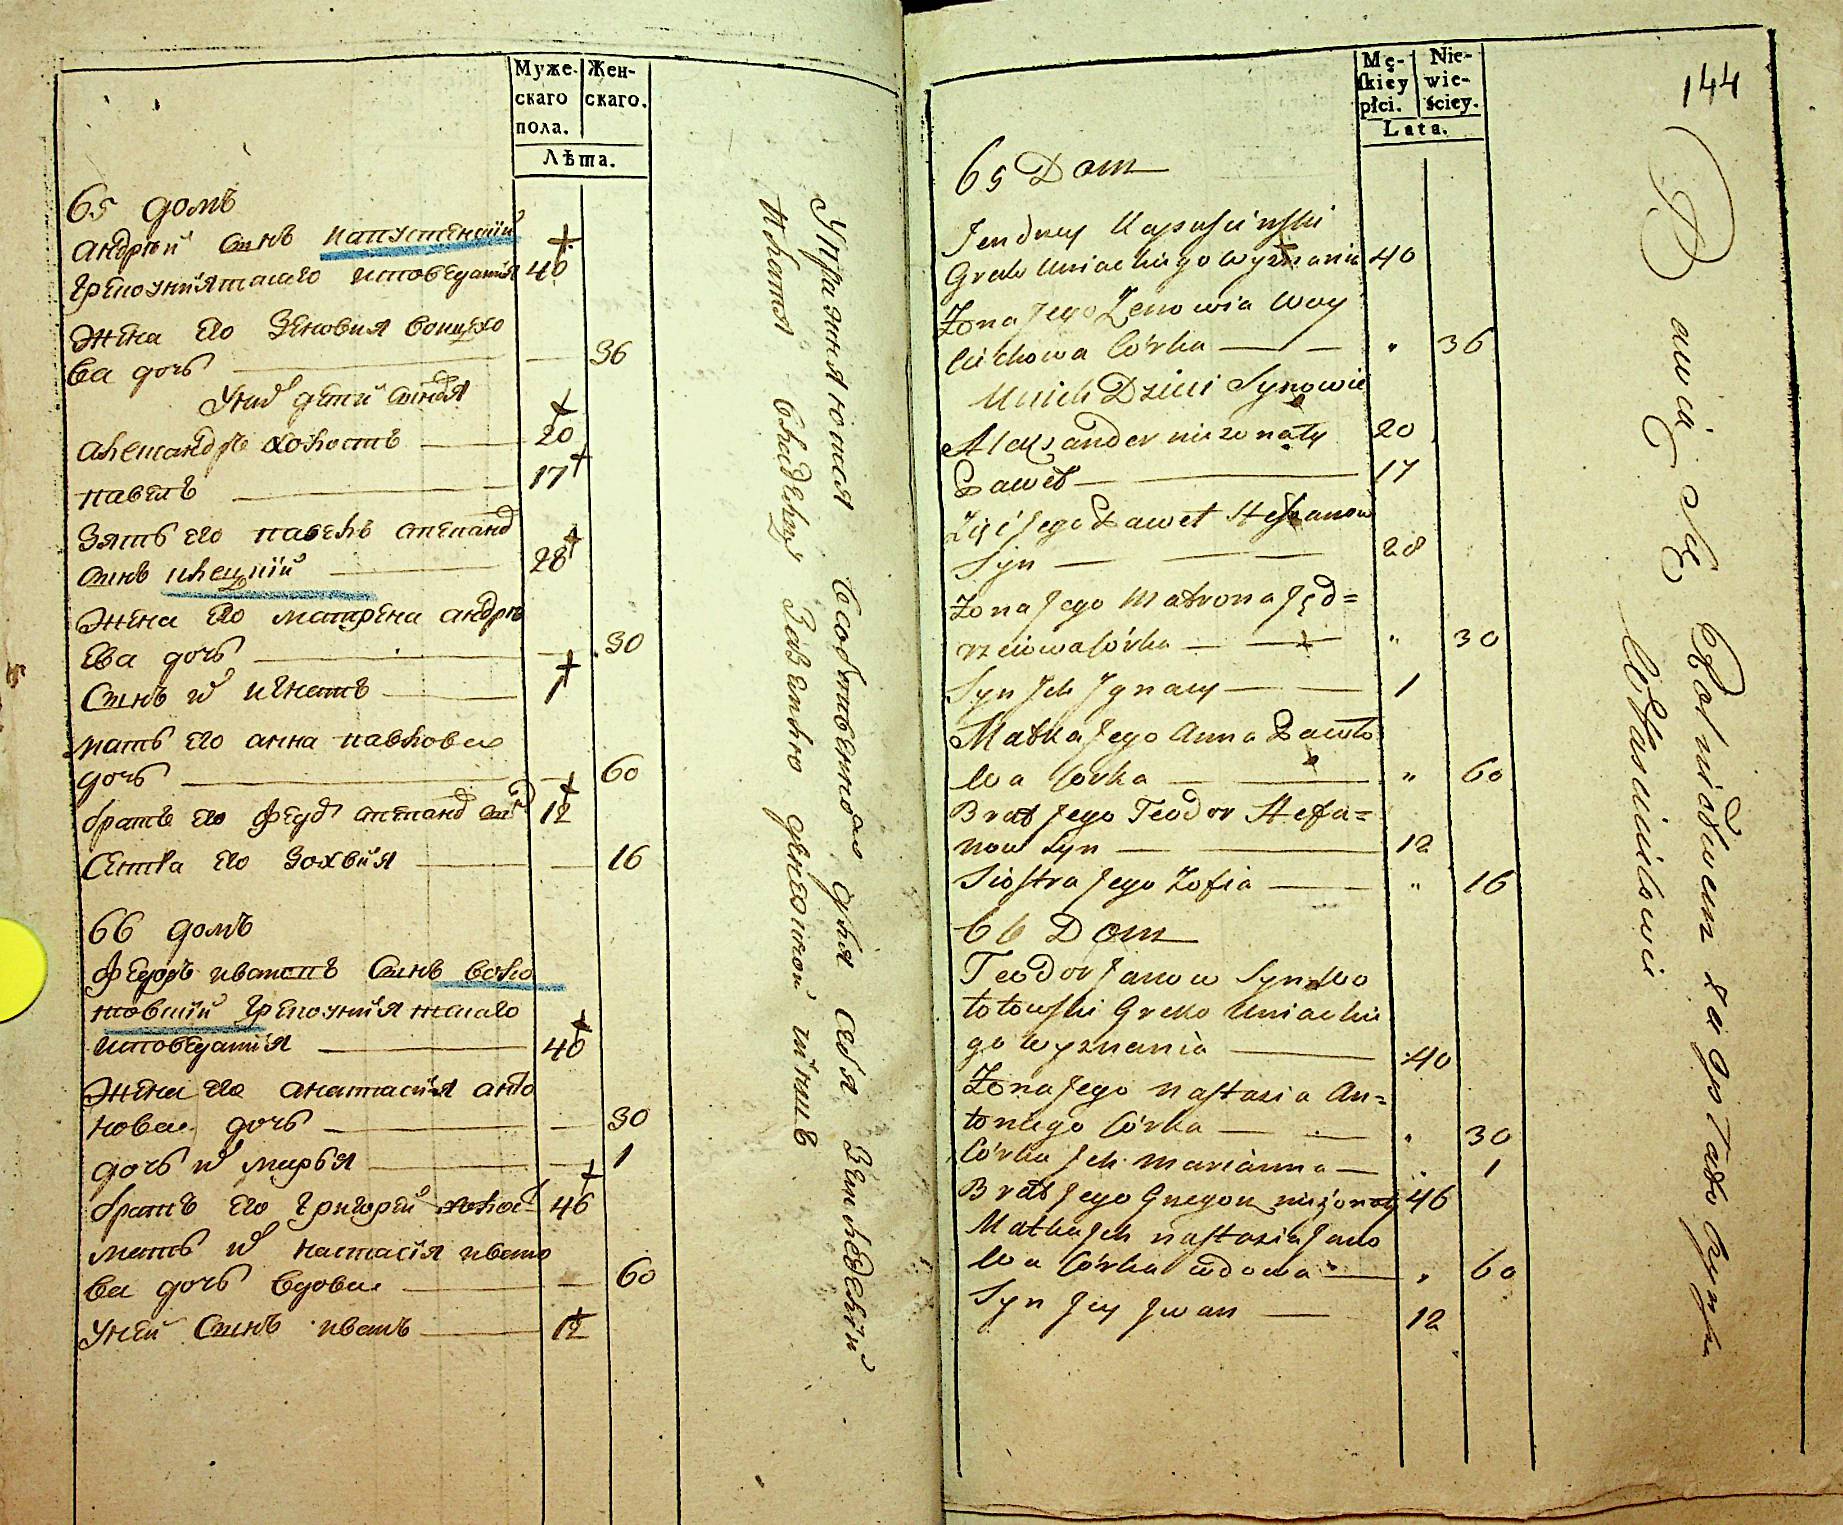 Муже-
скаго
пола.
Жен-
скаго.
Лѣта.
65 домъ
Андрей сынъ Капустинский
Грекоуниятскаго исповедания 40
Жена его Зеновия Войцехо
ва дочь 36
У них дети сыновья
Александръ холостъ 20
Павелъ 17
Зять его Павелъ Степанов
сынъ 28
Жена его Матрена Андре
ева дочь 30
Сынъ их Игнатъ 1
Мать его Анна Павлова
дочь 60
Братъ его Федор Степанов сын 12
Сестра его Зофия 16
66 домъ
Федоръ Ивановъ сынъ Воло
товский Грекоуниятскаго
исповедания 40
Жена его Анастасия Анто
нова дочь 30
Дочь их Марья 1
Братъ его Григорий холост 46
Мать их Настасия Ивано
ва дочь вдова 60
У ней сынъ Иванъ 12
Упражняются собственною для себя
деревенской
Mę-
skiey
płci.
Nie-
wie-
ściey.
Lata.
144
65 Dom
Jendrzy Kapuściński
Greko Uniackiego wyznania 40
Żona Jego Zenowia Woy
ciechowa Córka " 36
U nich Dzieci Synowie
Alexander nieżonaty 20
Paweł 17
Zięć Jego Paweł Stefanow
Syn 28
Żona Jego Matrona Jęd=
rzeiowa Córka " 30
Syn Jch Jgnacy 1
Matka Jego Anna Pawło
wa Córka " 60
Brat Jego Teodor Stefa=
now Syn 12
Siostra Jego Zofia " 16
66 Dom
Teodor Janow Syn Wo
łotowski Greko Uniackie
go wyznania 40
Żona Jego Nastazia An=
toniego Córka " 30
Córka Jch Marianna " 1
Brat Jego Gregory nieżonaty 46
Matka Jch Nastazia Jano
wa Córka wdowa " 60
Syn Jey Jwan 12
Bawią się Rolnictwem